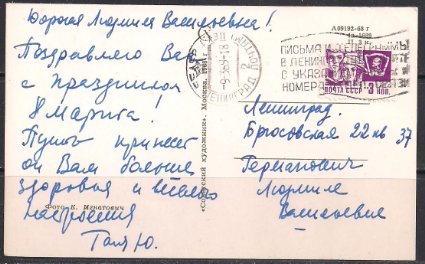 Дорогая Людмила Васильевна!
Поздравляю Вас
с праздником
8 Марта!
Пусть принесет
он Вам больше
здоровья и
настроения
Галя Ю.
Фото Е. Игнатович
«Советский художник». Москва.
ЛЕНИНГРАД
ПИСЬМА И
В ЛЕНИН
С УКАЗА
НОМЕРА
ПОЧТА СССР 3 КОП.
Ленинград.
Брюсовская 22 кв 37
Германович
Людмиле
Васильевне